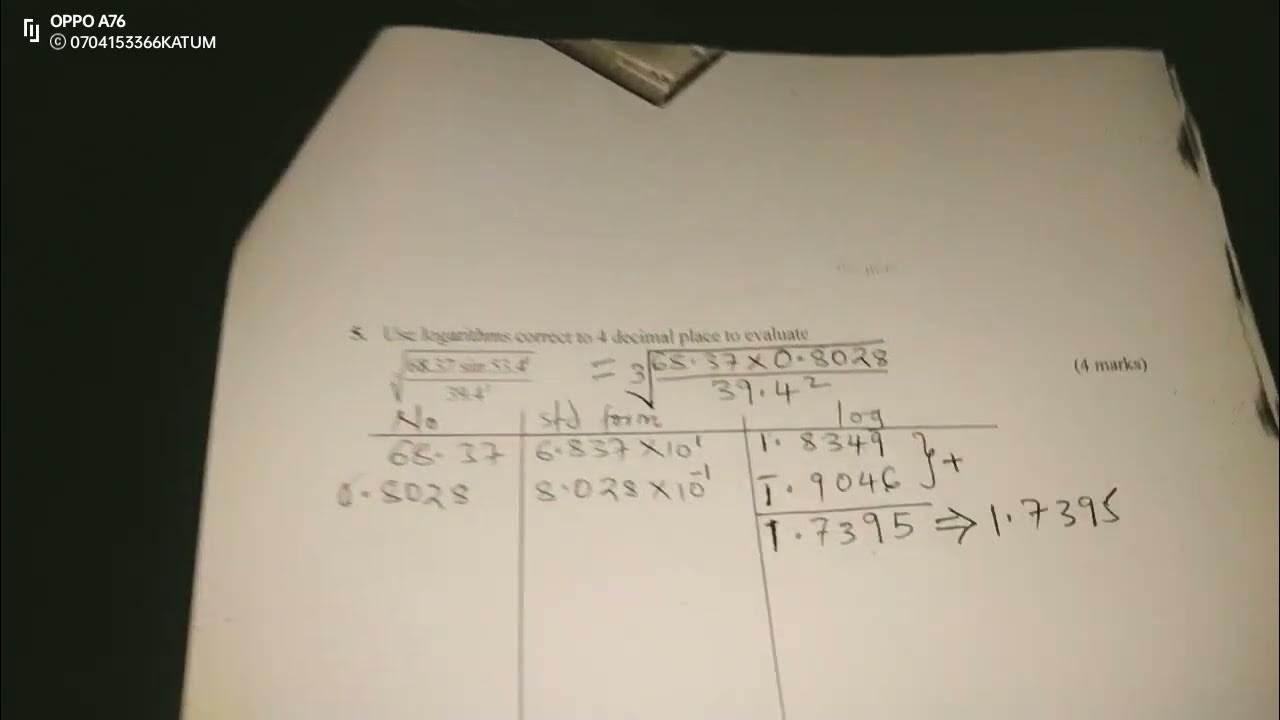 OPPO A76
© 0704153366KATUM
5. Use logarithms correct to 4 decimal place to evaluate
√68.37 sin 53.4° / 39.4² = ³√68.37 × 0.8028 / 39.4² (4 marks)
No std form log
68.37 6.837 × 10¹ 1.8349 } +
0.8028 8.028 × 10⁻¹ 1̄.9046
1.7395 ⇒ 1.7395